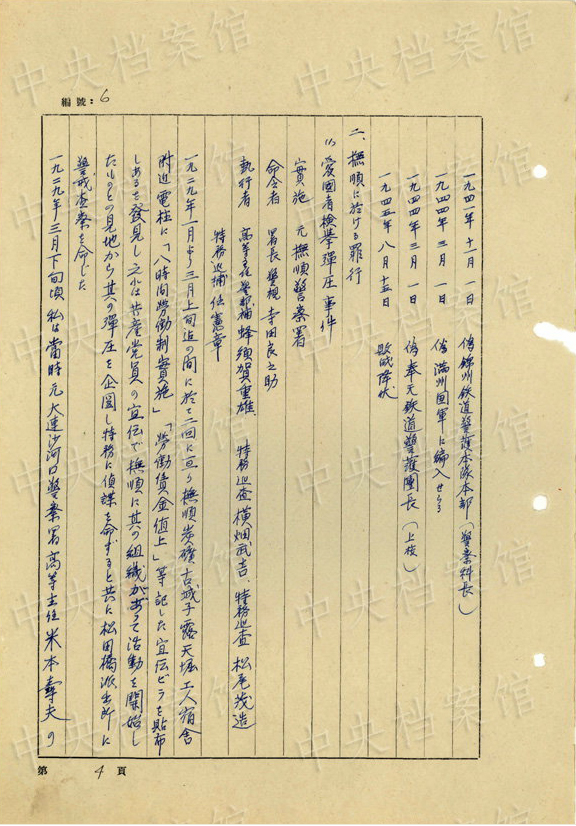 編號：6
一九四一年十一月一日　偽錦州鉄道警護本隊本部（警察科長）
一九四四年三月一日　偽満州国軍に編入せらる
一九四四年三月一日　偽奉天鉄道警護團長（上校）
一九四五年八月十五日　敗戦降伏
二、撫順に於ける罪行
(1)愛國者検挙弾圧事件
實施　元撫順警察署
命令者　署長警視　寺田良之助
執行者　高等主任警部補　蜂須賀重雄、特務巡查　横畑武吉、特務巡查　松尾茂造
特務巡捕　任憲章
一九二九年一月より三月上旬迄の間に於て二回に亘り撫順炭礦古城子露天堀工人宿舎
附近電柱に「八時間勞働制實施」「勞働賃金値上」等記した宣伝ビラを貼布
しあるを發見し之れは共産党員の宣伝で撫順に其の組織があって活動を開始し
たものとの見地から其の彈圧を企圖し特務に偵諜を命ずると共に松田橋派出所に
警戒査察を命じた
一九二九年三月下旬頃私は當時元大連沙河口警察署高等主任米本壽夫の
第4頁
中央档案馆